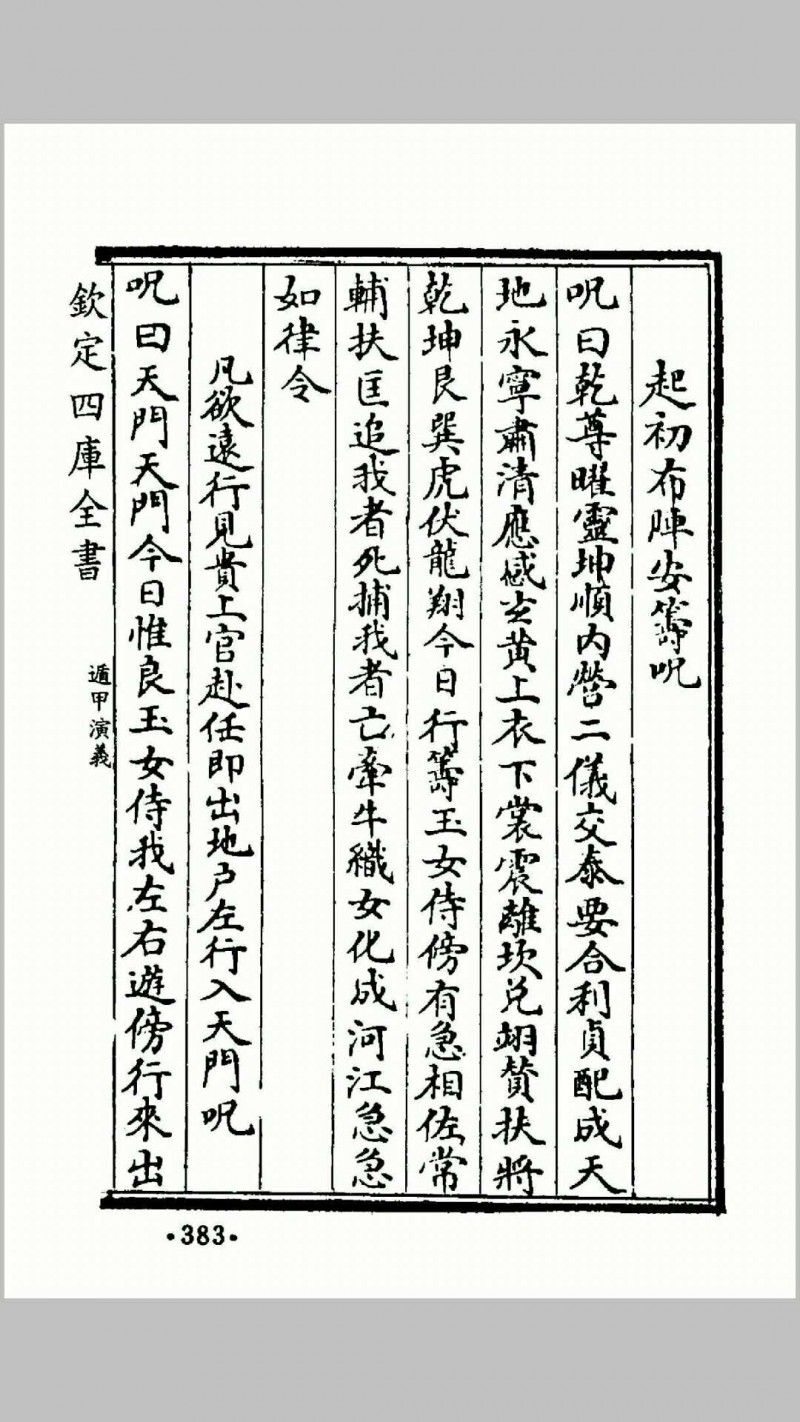 起初布陣安籌呪
呪曰乾尊曜靈坤順内營二儀交泰要合利貞配成天
地永寧肅清應感玄黄上衣下裳震離坎兑翊賛扶將
乾坤艮巽虎伏龍翔今日行籌玉女侍傍有急相佐常
輔扶匡追我者死捕我者亡牽牛織女化成河江急急
如律令
凡欲遠行見貴上官赴任即出地户左行入天門呪
呪曰天門天門今日惟良玉女侍我左右遊傍行來出
欽定四庫全書
遁甲演義
·383·